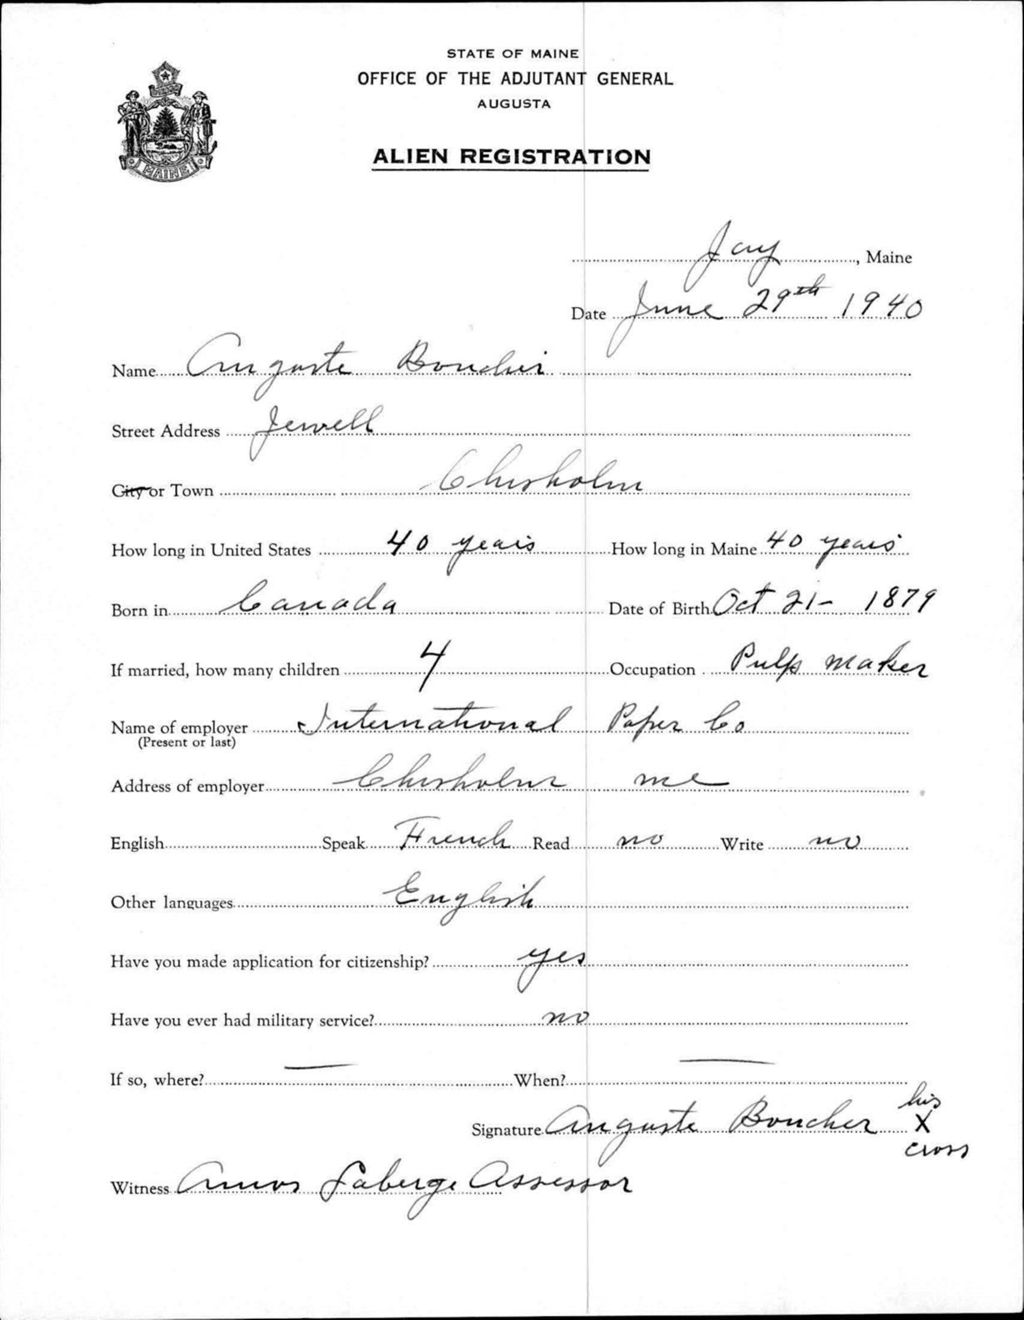 STATE OF MAINE
OFFICE OF THE ADJUTANT GENERAL
AUGUSTA
ALIEN REGISTRATION
MAINE
Jay, Maine
Date June 29th 1940
Name Auguste Boucher
Street Address Jewell
City or Town Chisholm
How long in United States 40 years How long in Maine 40 years
Born in Canada Date of Birth Oct 21- 1879
If married, how many children 4 Occupation Pulp maker
Name of employer International Paper Co
(Present or last)
Address of employer Chisholm me
English Speak French Read no Write no
Other languages English
Have you made application for citizenship? yes
Have you ever had military service? no
If so, where? — When? —
his
Signature Auguste Boucher X
cross
Witness Amos Laberge Assessor